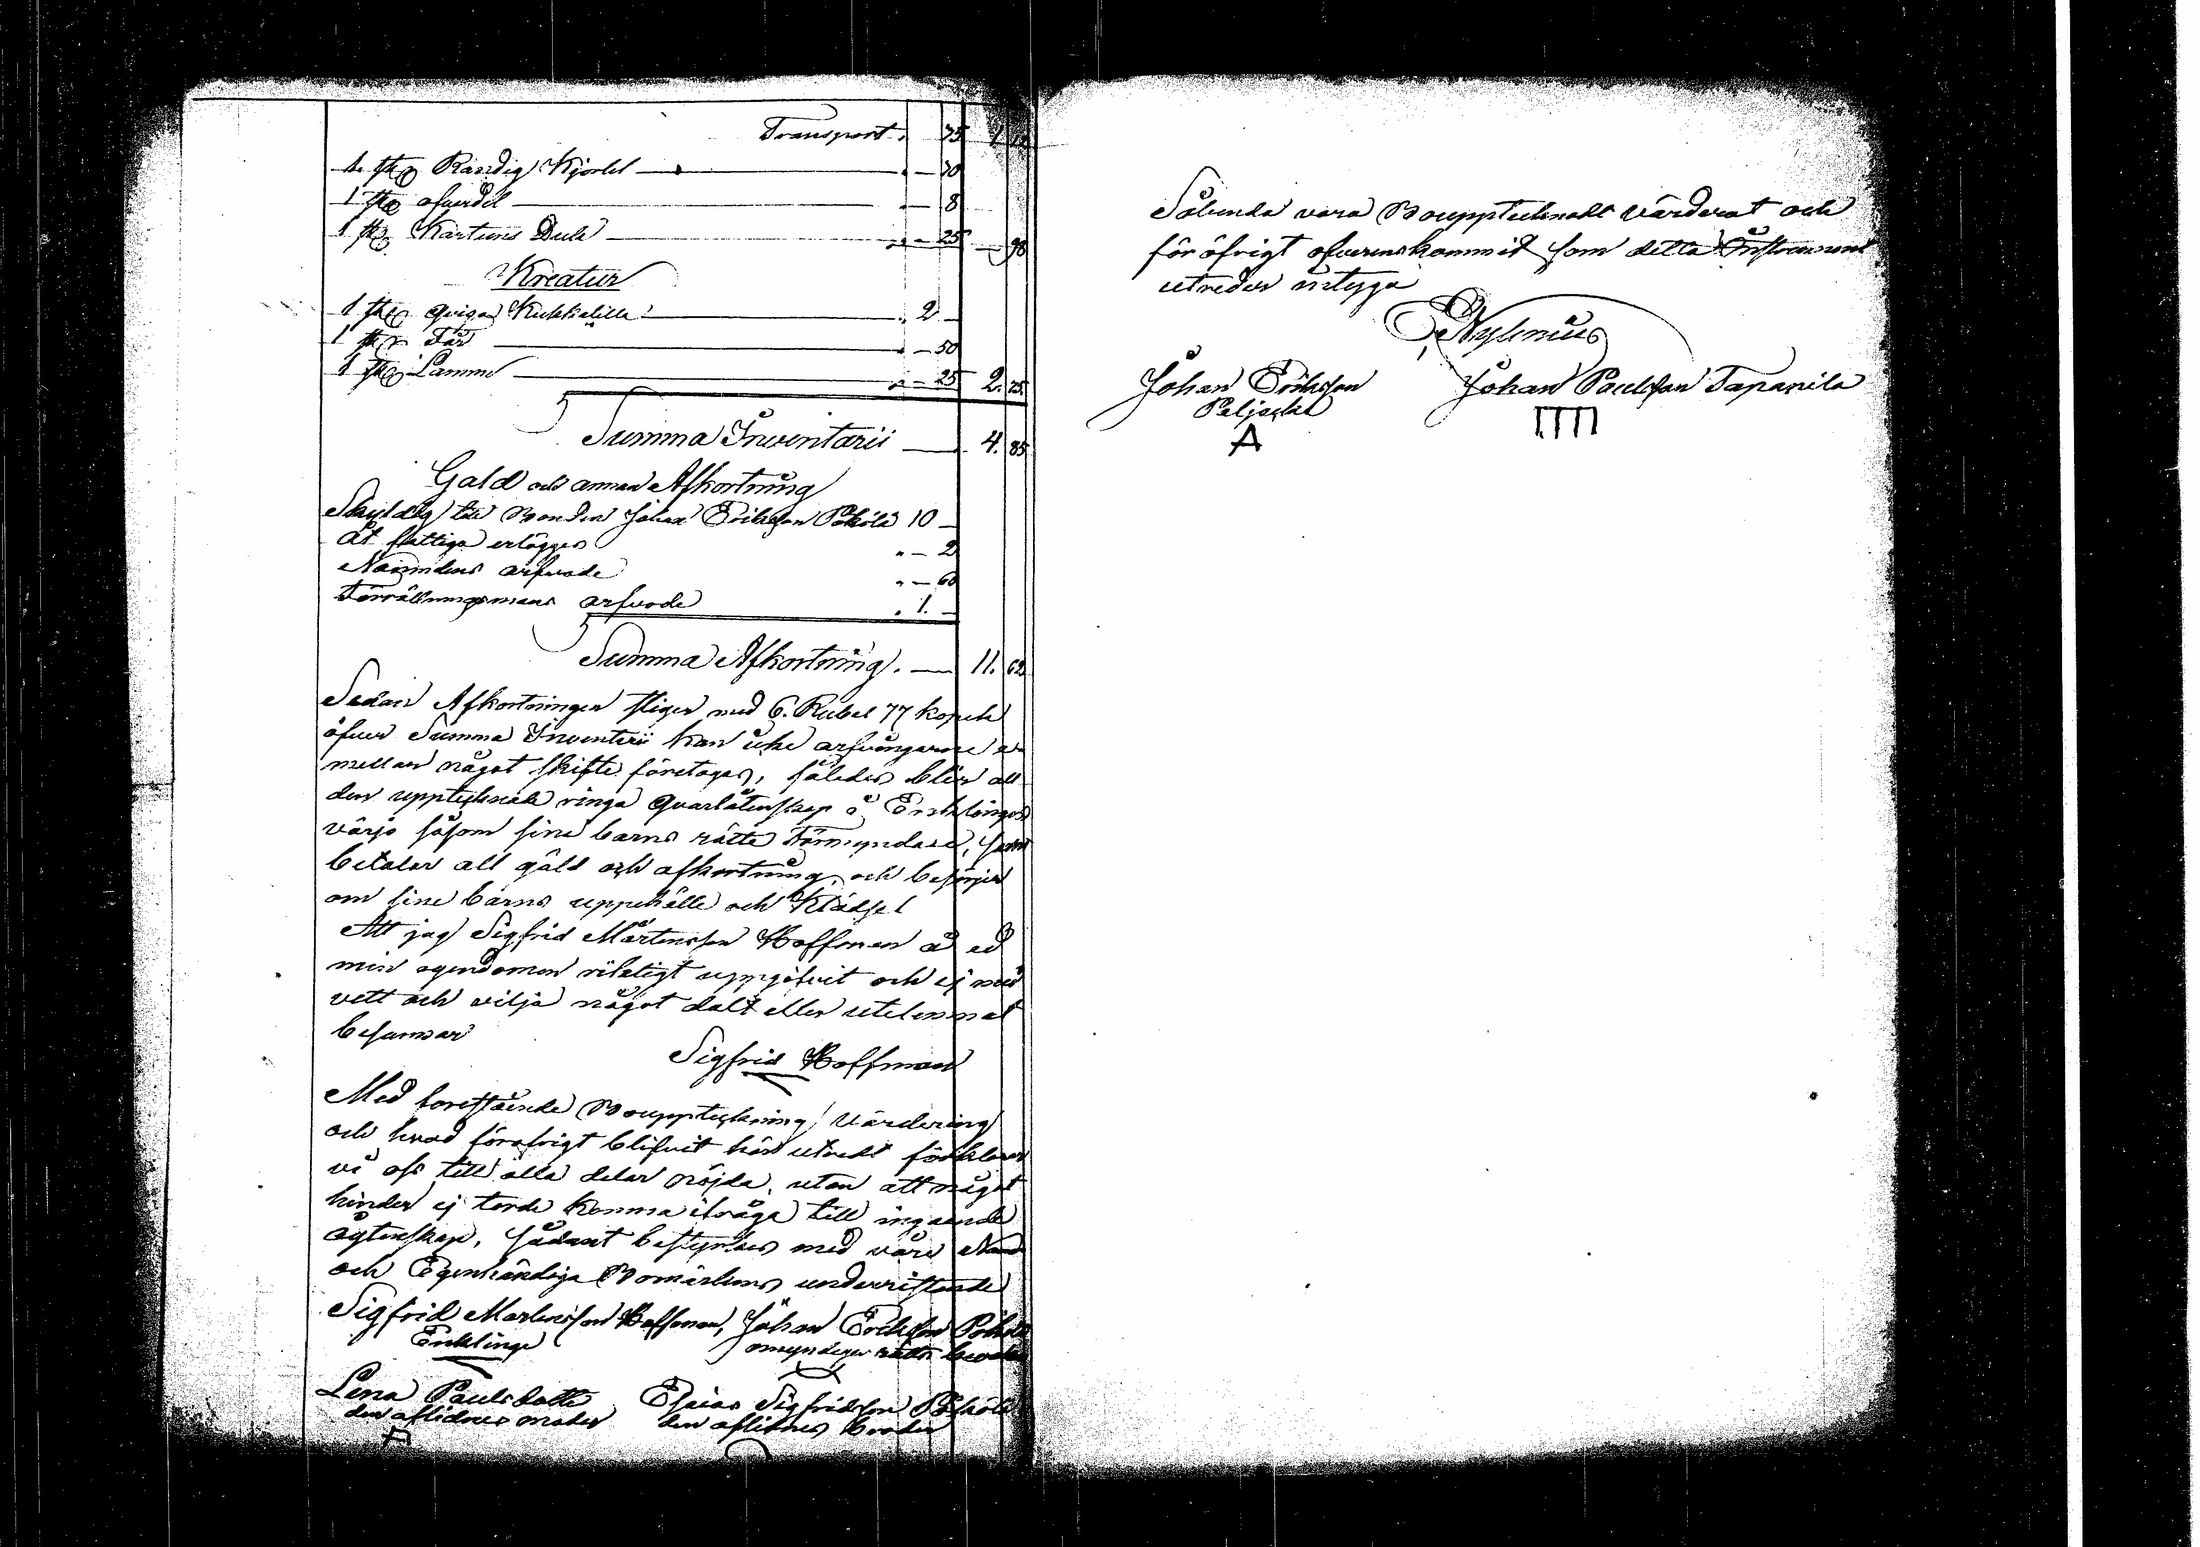 Transport . 75 1 12
1 st Randig Kjortel — " — 70
1 st ofverdel — " — 8
1 st Kartuns Duk — " — 25 — 98
Kreatur
1 st qviga Kukkalilla — " 2 —
1 st Får — " — 50
1 st Lamm — " — 25 2. 75
Summa Inventarii — 4. 85
Gäld och annan Afkortning
Skyldig till Bonden Johan Eriksson Pöhölä 10 —
åt fattiga erlägges " — 2
Nämndens arfvode " — 60
Förrättningsmans arfvode " 1. —
Summa Afkortning. — 11. 62
Sedan Afkortningen stiger med 6. Rubel 77 kopek
öfver Summa Inventarii kan icke arfvingarne e
mellan något skifte företagas, således blir all
den upptecknade ringa qvarlåtenskap i Enklingens
värjo såsom sine barns rätte Förmyndare, som
betalar all gäld och afkortning, och besörjer
om sine barns uppehälle och Klädsel
Att jag Sigfrid Mårtensson Hoffman å ed
min egendomen riktigt uppgifvit och ej med
vett och vilja något dålt eller utelemnat
besannar
Sigfrid Hoffman
Med förestående Bouppteckning, värdering
och hvad föröfrigt blifvit här utredt förklarar
vi oss till alla delar nöjda, utan att något
hinder ej torde komma ifråga till ingående
ägtenskap, sådant bestyrkes med våre Namn
och Egenhändiga Bomärkens underristande
Sigfrid Martensson Hoffman, Johan Eriksson Pöhölä
Enklinge omyndiges
Lena Paulsdotter Esaias Sigfridsson Pöhölä
den aflidnes moder den aflidnes broder
Sålunda vara Boupptecknadt värderat och
för öfrigt öfverenskommit som detta Instrument
utreder intyga
Nylenius
Johan Eriksson Johan Paulsson Tapanila
Peljaska
A